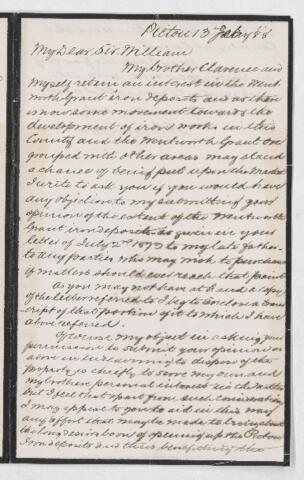 Pictou 13th Feby/88
My Dear Sir William
My brother Clarence and
myself retain an interest in the Went
worth Grant iron deposits and as there
is now some movement towards the
development of iron works in this
County and the Wentworth Grant
grouped with other areas may stand
a chance of being put upon the Market
I write to ask you if you would have
any objection to my submitting your
opinion of the extent of the Wentworth
Grant iron deposits as given in your
letter of July 2nd 1873 to my late father
to any parties who may wish to purchase
if matters should ever reach that point
As you may not have at hand a copy
of the letter referred to I beg to enclose a trans
cript of that portion of it to which I have
above referred.
Of course my object in asking your
permission to submit your opinion as
above in endeavoring to dispose of the
property is chiefly to serve my own and
my brothers personal interest in the matter
but I feel that apart from such consideration
I may appeal to you to aid in this way
any effort that may be made to bring about
the long desired boon of opening up the Pictou
Iron deposits and thus benefitting the